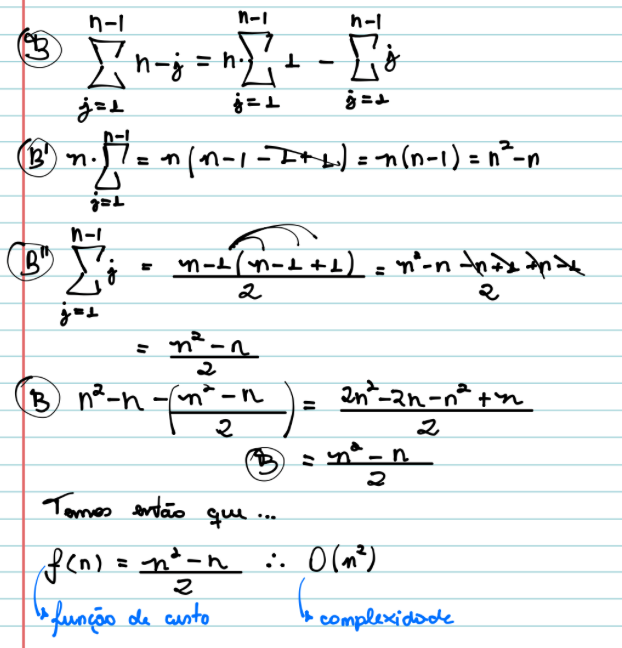 (B) ∑_{j=1}^{n-1} n-j = n·∑_{j=1}^{n-1} 1 - ∑_{j=1}^{n-1} j
(B') n·∑_{j=1}^{n-1} = n(n-1-1+1) = n(n-1) = n²-n
(B'') ∑_{j=1}^{n-1} j = n-1(n-1+1)/2 = n²-n-n+1+n-1/2
= n²-n/2
(B) n²-n-(n²-n/2) = 2n²-2n-n²+n/2
(B) = n²-n/2
Temos então que ...
f(n) = n²-n/2 ∴ O(n²)
função de custo complexidade